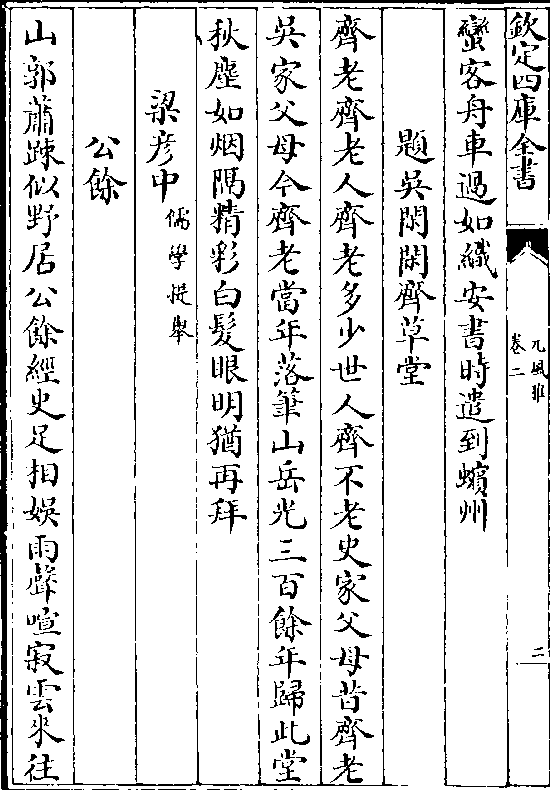 欽定四庫全書
元風雅
卷二
二
蠻客舟車過如織安書時遣到蠙州
題吳閑閑齊草堂
齊老齊老人齊老多少世人齊不老史家父母昔齊老
吳家父母今齊老當年落筆山岳光三百餘年歸此堂
秋塵如烟隔精彩白髮眼明猶再拜
梁彥中儒學提舉
公餘
山郭蕭踈似野居公餘經史足相娛雨聲喧寂雲來往